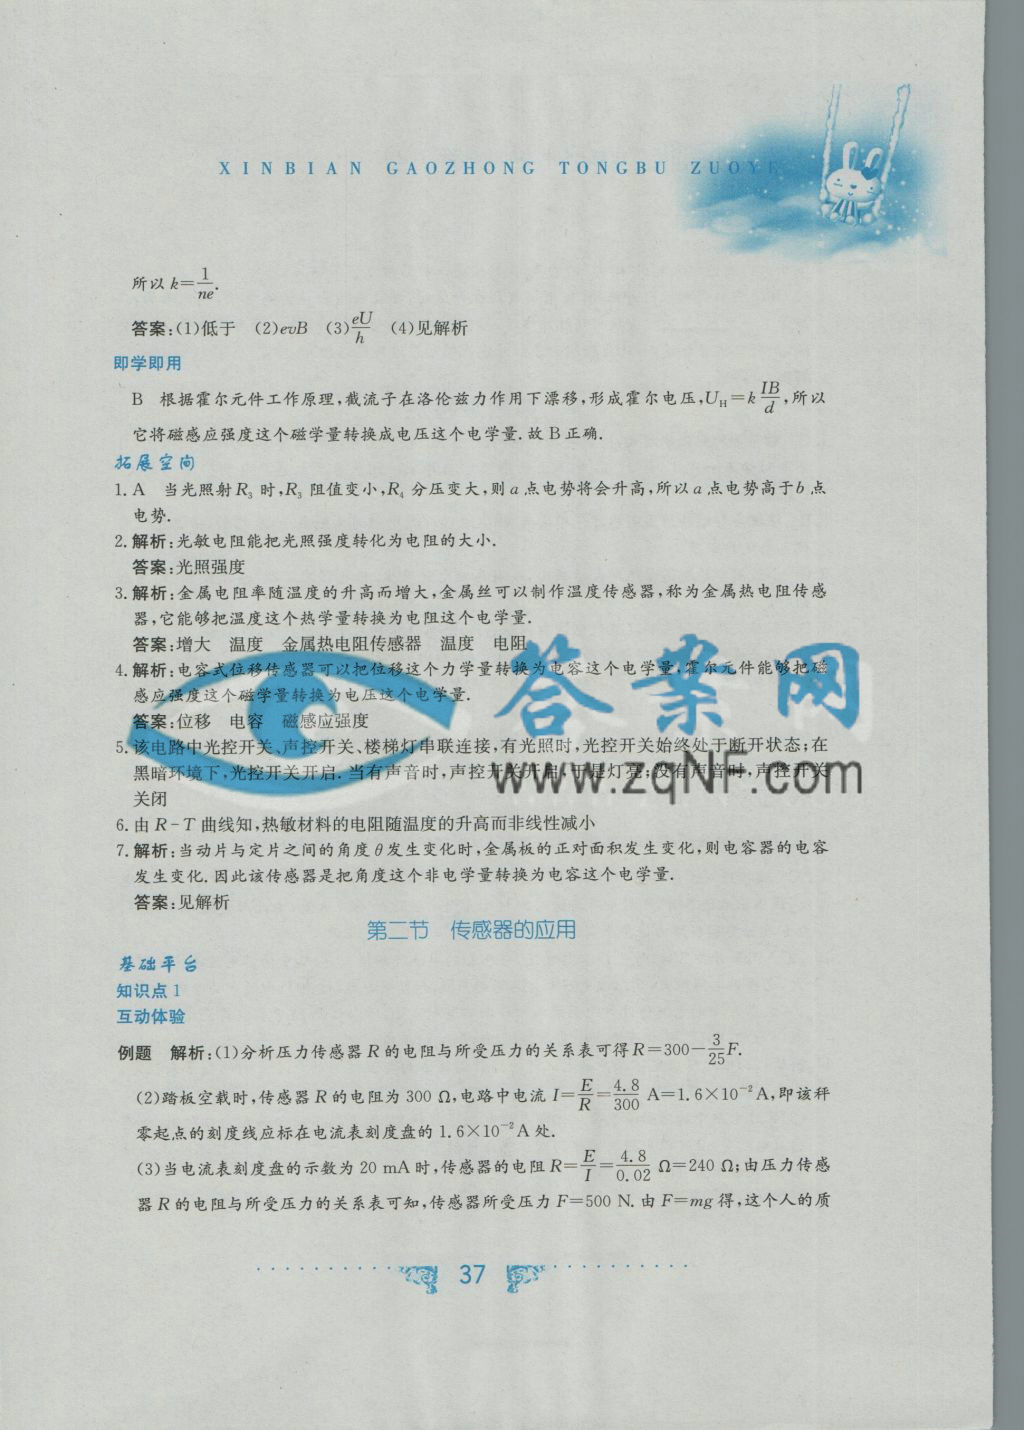 XINBIAN GAOZHONG TONGBU ZUOYE
所以 k=1/ne.
答案:(1)低于 (2)evB (3)eU/h (4)见解析
即学即用
B 根据霍尔元件工作原理,截流子在洛伦兹力作用下漂移,形成霍尔电压,U_H=k IB/d,所以
它将磁感应强度这个磁学量转换成电压这个电学量.故B正确.
拓展空间
1. A 当光照射R₃时,R₃阻值变小,R₄分压变大,则a点电势将会升高,所以a点电势高于b点
电势.
2. 解析:光敏电阻能把光照强度转化为电阻的大小.
答案:光照强度
3. 解析:金属电阻率随温度的升高而增大,金属丝可以制作温度传感器,称为金属热电阻传感
器,它能够把温度这个热学量转换为电阻这个电学量.
答案:增大 温度 金属热电阻传感器 温度 电阻
4. 解析:电容式位移传感器可以把位移这个力学量转换为电容这个电学量,霍尔元件能够把磁
感应强度这个磁学量转换为电压这个电学量.
答案:位移 电容 磁感应强度
答案网
www.zqNF.com
5. 该电路中光控开关、声控开关、楼梯灯串联连接,有光照时,光控开关始终处于断开状态;在
黑暗环境下,光控开关开启.当有声音时,声控开关开启,于是灯亮;没有声音时,声控开关
关闭
6. 由R-T曲线知,热敏材料的电阻随温度的升高而非线性减小
7. 解析:当动片与定片之间的角度θ发生变化时,金属板的正对面积发生变化,则电容器的电容
发生变化.因此该传感器是把角度这个非电学量转换为电容这个电学量.
答案:见解析
第二节 传感器的应用
基础平台
知识点1
互动体验
例题 解析:(1)分析压力传感器R的电阻与所受压力的关系表可得R=300-3/25F.
(2)踏板空载时,传感器R的电阻为300 Ω,电路中电流I=E/R=4.8/300 A=1.6×10⁻²A,即该秤
零起点的刻度线应标在电流表刻度盘的1.6×10⁻²A处.
(3)当电流表刻度盘的示数为20 mA时,传感器的电阻R=E/I=4.8/0.02 Ω=240 Ω;由压力传感
器R的电阻与所受压力的关系表可知,传感器所受压力F=500 N.由F=mg得,这个人的质
37